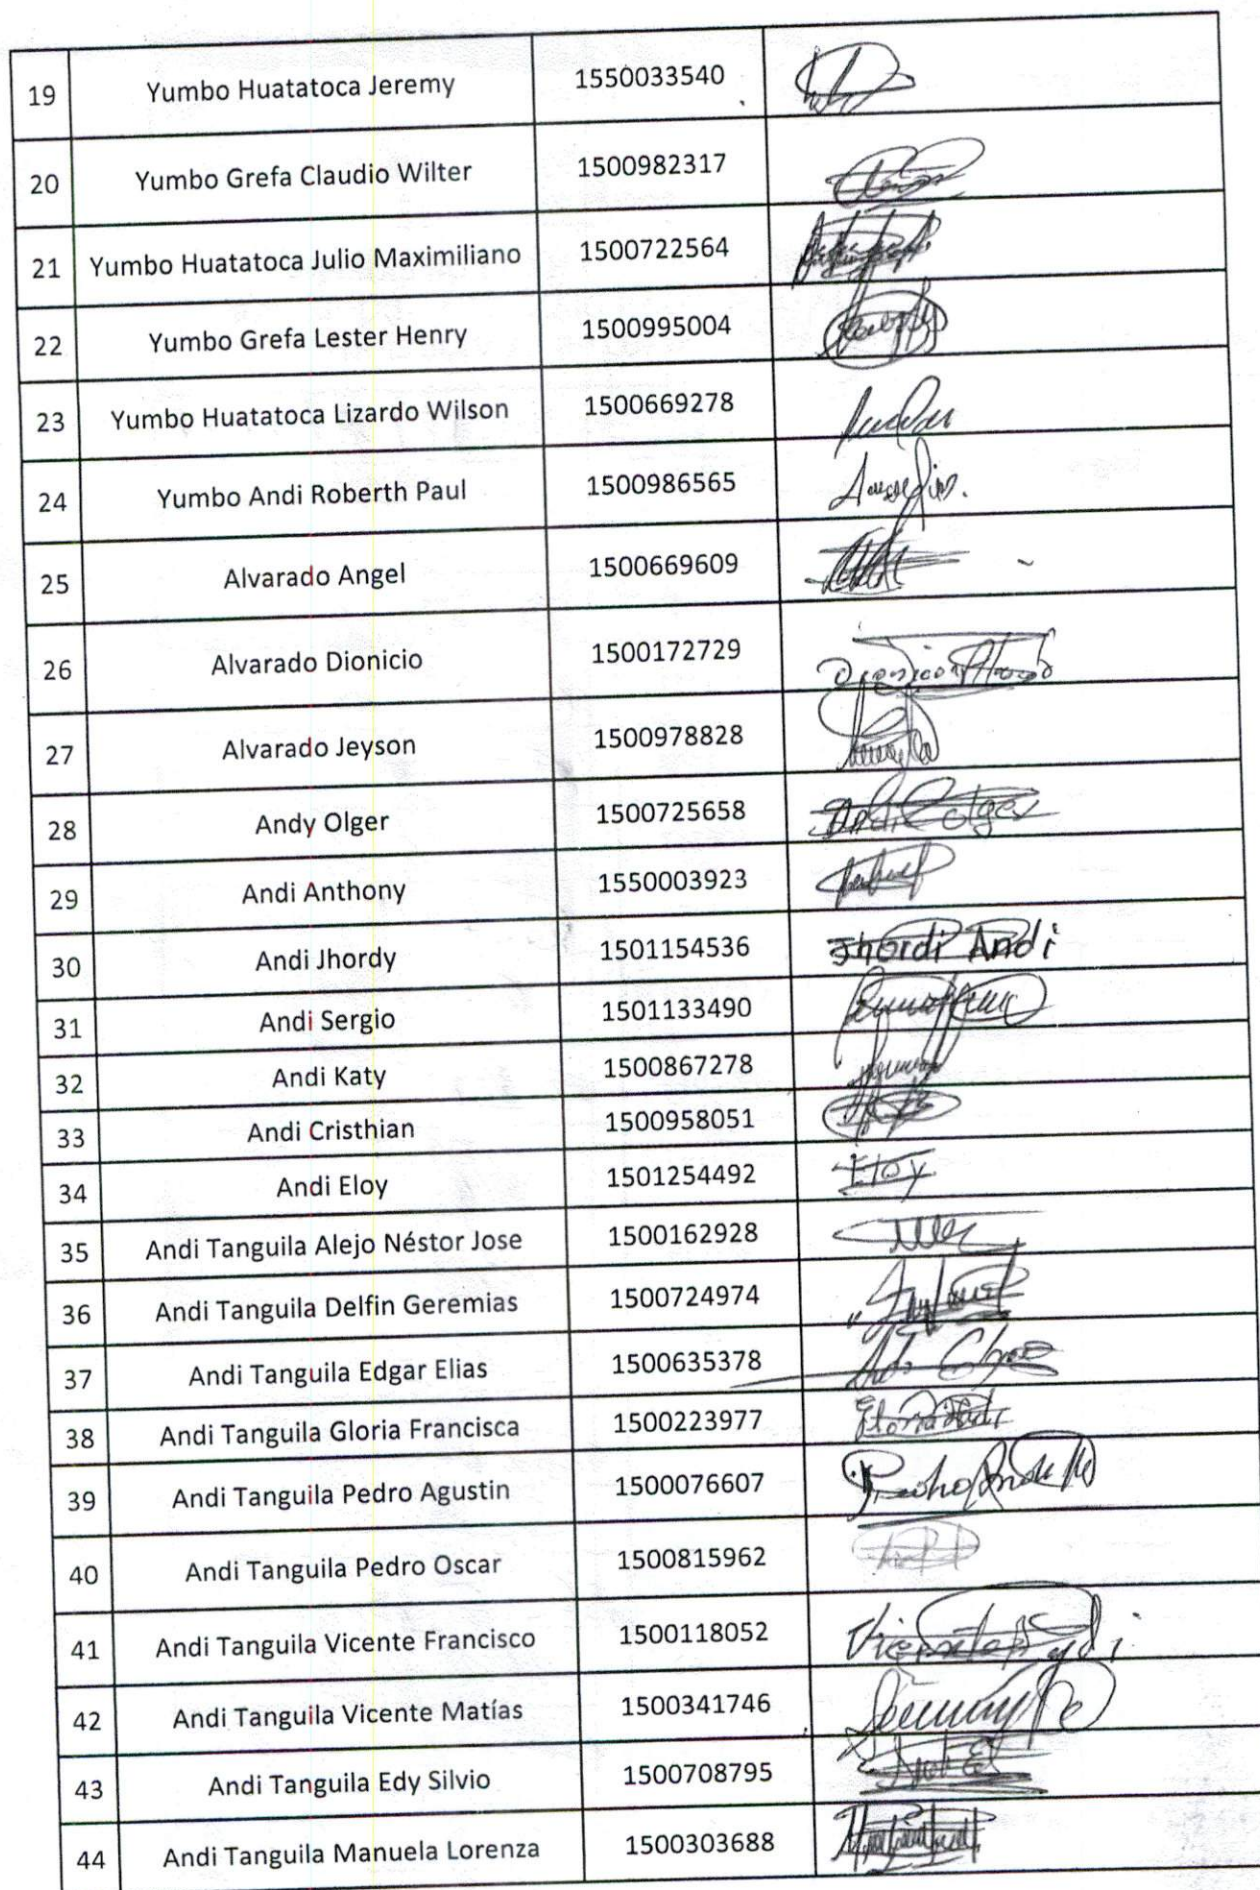 19 Yumbo Huatatoca Jeremy 1550033540
20 Yumbo Grefa Claudio Wilter 1500982317
21 Yumbo Huatatoca Julio Maximiliano 1500722564
22 Yumbo Grefa Lester Henry 1500995004
23 Yumbo Huatatoca Lizardo Wilson 1500669278
24 Yumbo Andi Roberth Paul 1500986565
25 Alvarado Angel 1500669609
26 Alvarado Dionicio 1500172729
27 Alvarado Jeyson 1500978828
28 Andy Olger 1500725658 Andi Olger
29 Andi Anthony 1550003923
30 Andi Jhordy 1501154536 Jhordi Andi
31 Andi Sergio 1501133490
32 Andi Katy 1500867278
33 Andi Cristhian 1500958051
34 Andi Eloy 1501254492 Eloy
35 Andi Tanguila Alejo Néstor Jose 1500162928
36 Andi Tanguila Delfin Geremias 1500724974
37 Andi Tanguila Edgar Elias 1500635378
38 Andi Tanguila Gloria Francisca 1500223977
39 Andi Tanguila Pedro Agustin 1500076607
40 Andi Tanguila Pedro Oscar 1500815962
41 Andi Tanguila Vicente Francisco 1500118052
42 Andi Tanguila Vicente Matías 1500341746
43 Andi Tanguila Edy Silvio 1500708795
44 Andi Tanguila Manuela Lorenza 1500303688